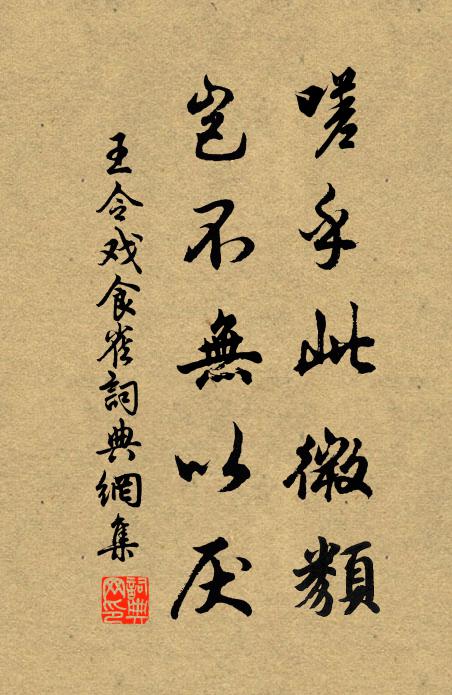 嗟乎此微類
岂不無以厌
王令戏食雀詞典網集
詞典网印